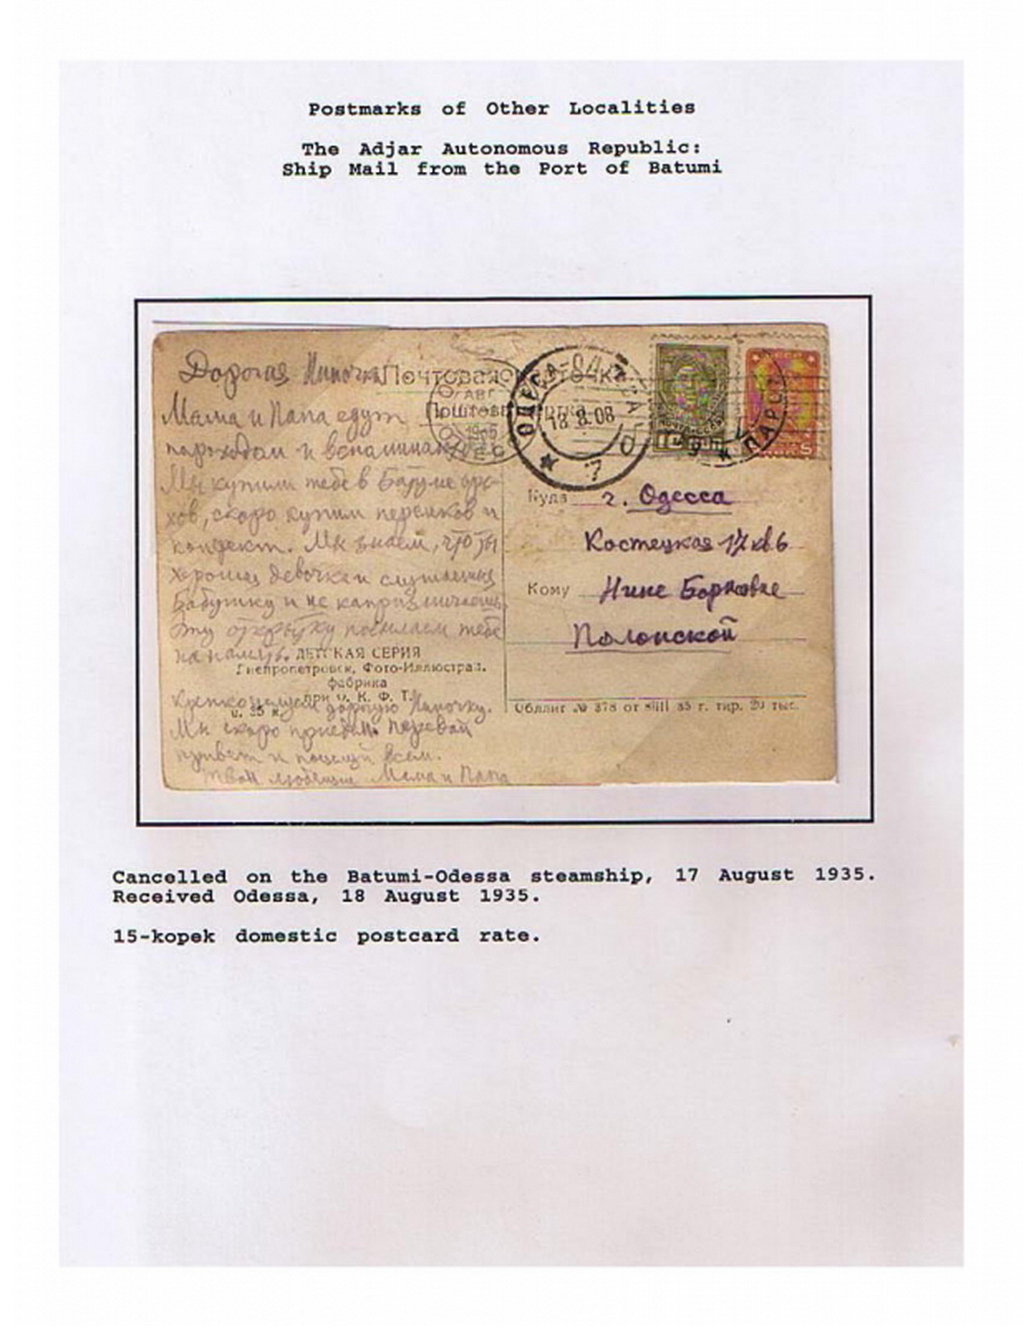 Postmarks of Other Localities
The Adjar Autonomous Republic:
Ship Mail from the Port of Batumi
Дорогая Ниночка
Почтовая карточка
Мама и Папа едут
Поштова картка
пароходом и вспоминают
Мы купили тебе в Батуме оре-
хов, скоро купим персиков и
конфект. Мы знаем, что ты
хорошая девочка и слушаешь
Бабушку и не капризничаешь.
Эту открытку посылаем тебе
на память.
ДЕТСКАЯ СЕРИЯ
Днепропетровск, Фото-Иллюстрац.
фабрика
при о. К. Ф. Т.
ц. 35 к.
Крепко целуем дорогую Ниночку.
Мы скоро приедем. Передай
привет и поцелуй всем.
Твои любящие Мама и Папа
АВГ
ОДЕСА
18.8.08
7
ПАРОХ
Куда г. Одесса
Костецкая 17 кв 6
Кому Нине Борисовне
Полонской
Обллит № 378 от 8/III 35 г. тир. 20 тыс.
Cancelled on the Batumi-Odessa steamship, 17 August 1935.
Received Odessa, 18 August 1935.
15-kopek domestic postcard rate.